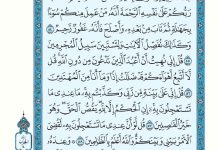 رَبُّكُمْ عَلَىٰ نَفْسِهِ ٱلرَّحْمَةَ أَنَّهُۥ مَنْ عَمِلَ مِنكُمْ سُوٓءًۢا
بِجَهَـٰلَةٍ ثُمَّ تَابَ مِنۢ بَعْدِهِۦ وَأَصْلَحَ فَأَنَّهُۥ غَفُورٌ رَّحِيمٌ
وَكَذَٰلِكَ نُفَصِّلُ ٱلْـَٔايَـٰتِ وَلِتَسْتَبِينَ سَبِيلُ ٱلْمُجْرِمِينَ
قُلْ إِنِّى نُهِيتُ أَنْ أَعْبُدَ ٱلَّذِينَ تَدْعُونَ مِن دُونِ ٱللَّهِ قُل
لَّآ أَتَّبِعُ أَهْوَآءَكُمْ قَدْ ضَلَلْتُ إِذًا وَمَآ أَنَا۠ مِنَ ٱلْمُهْتَدِينَ
قُلْ إِنِّى عَلَىٰ بَيِّنَةٍ مِّن رَّبِّى وَكَذَّبْتُم بِهِۦ مَا عِندِى مَا
تَسْتَعْجِلُونَ بِهِۦٓ إِنِ ٱلْحُكْمُ إِلَّا لِلَّهِ يَقُصُّ ٱلْحَقَّ وَهُوَ
خَيْرُ ٱلْفَـٰصِلِينَ قُل لَّوْ أَنَّ عِندِى مَا تَسْتَعْجِلُونَ بِهِۦ لَقُضِىَ
ٱلْأَمْرُ بَيْنِى وَبَيْنَكُمْ وَٱللَّهُ أَعْلَمُ بِٱلظَّـٰلِمِينَ وَعِندَهُۥ